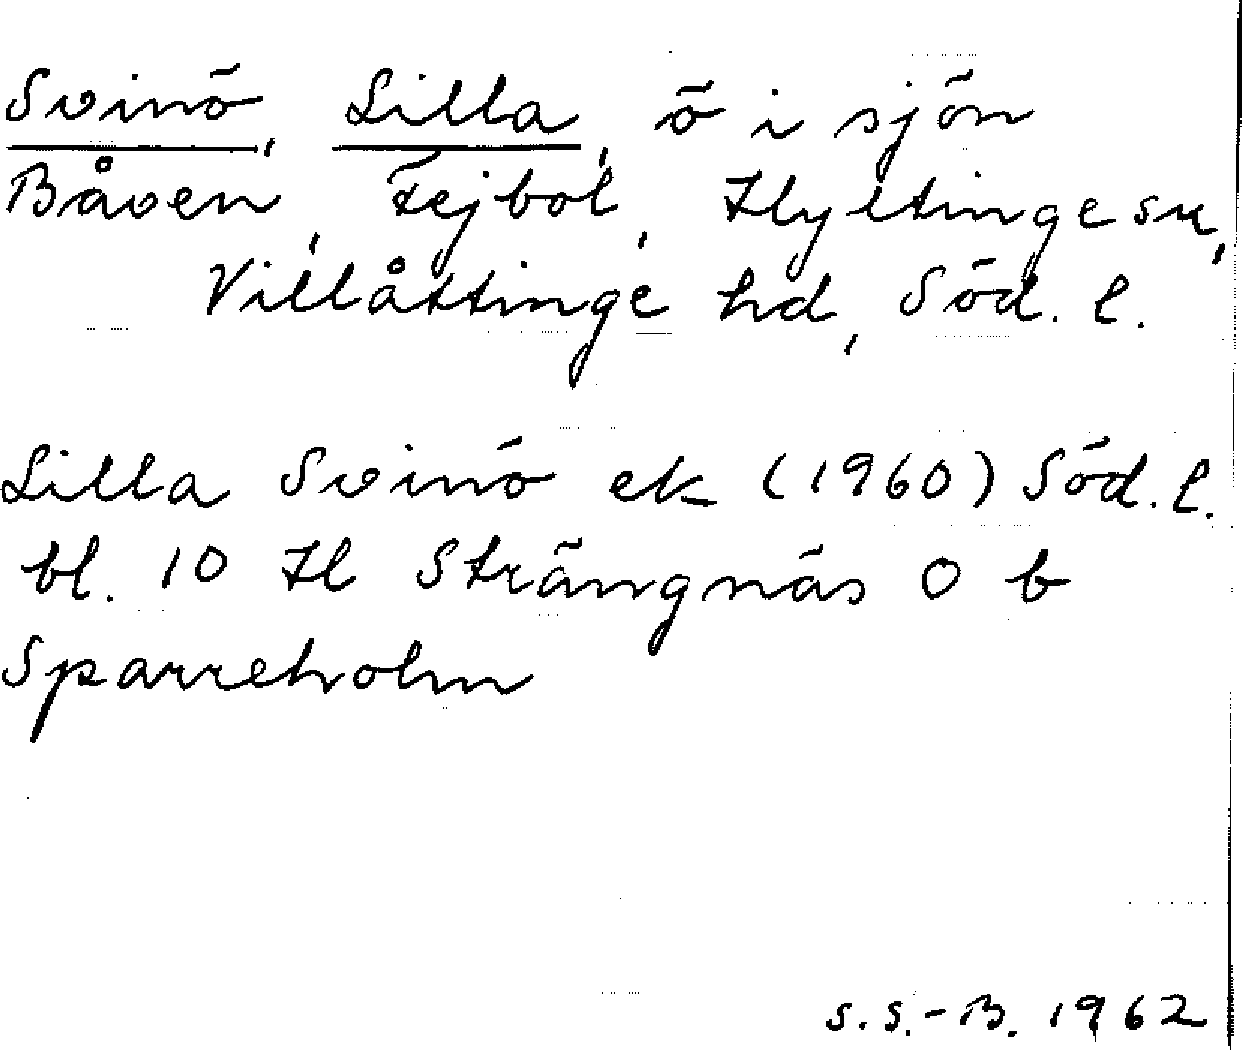 Svinö, Lilla, ö i sjön
Båven, Fejbol, Hyltinge sn,
Villåttinge hd, Söd. l.
Lilla Svinö ek (1960) Söd. l.
bl. 10 H Strängnäs O b
Sparreholm
S.S.-B. 1962